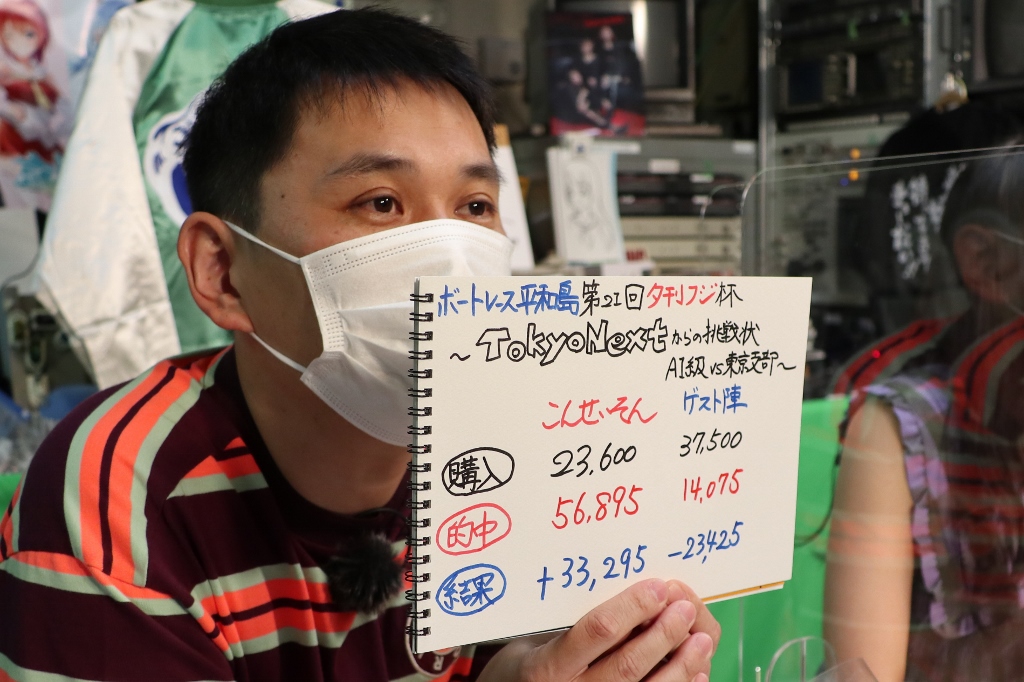 ボートレース平和島第21回夕刊フジ杯
～TokyoNextからの挑戦状
A1級vs東京支部～
こんせいそん ゲスト陣
購入 23,600 37,500
的中 56,895 14,075
結果 +33,295 -23,425